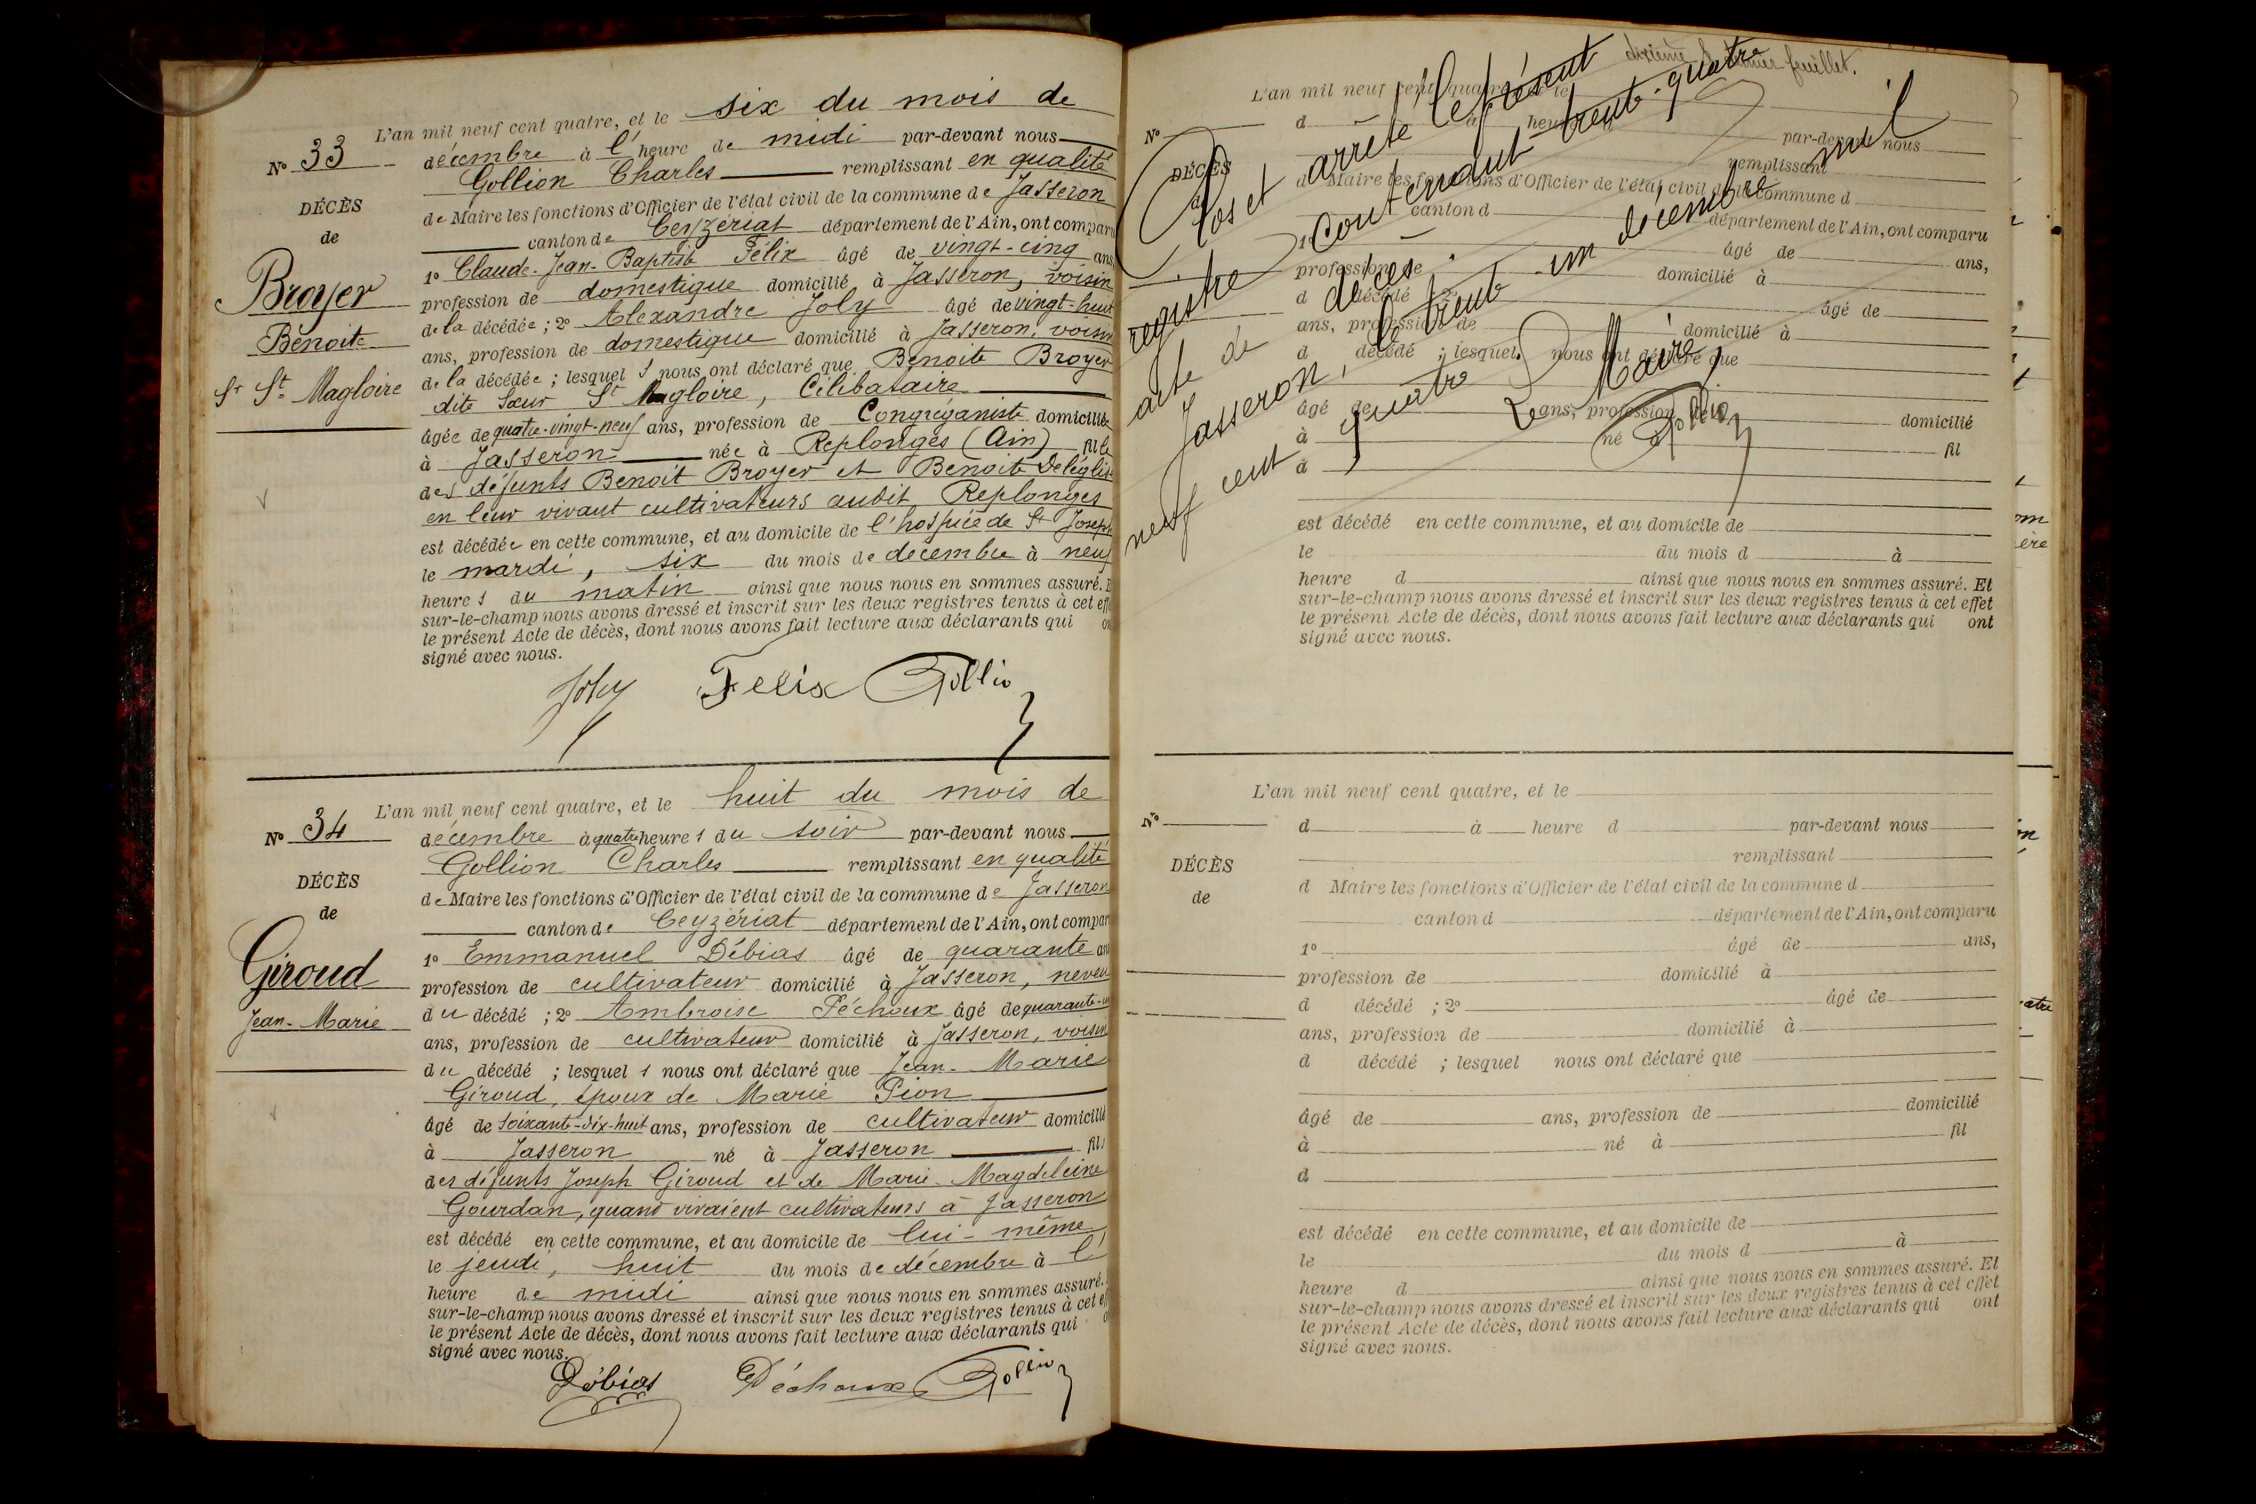 L'an mil neuf cent quatre, et le six du mois de
N° 33
décembre à l' heure de midi par-devant nous
Gollion Charles remplissant en qualité
DÉCÈS
de Maire les fonctions d'Officier de l'état civil de la commune de Jasseron
de
canton de Ceyzériat département de l'Ain, ont comparu
1° Claude-Jean-Baptiste Félix âgé de vingt-cinq ans
Broyer
profession de domestique domicilié à Jasseron, voisin
de la décédée ; 2° Alexandre Joly âgé de vingt-huit
Benoite
ans, profession de domestique domicilié à Jasseron, voisin
de la décédée ; lesquels nous ont déclaré que Benoite Broyer
Sr St Magloire
dite Sœur St Magloire, Célibataire
âgée de quatre-vingt-neuf ans, profession de Congréganiste domiciliée
à Jasseron née à Replonges (Ain) fille
des défunts Benoit Broyer et Benoite Deléglise
en leur vivant cultivateurs audit Replonges
est décédée en cette commune, et au domicile de l'hospice de St Joseph
le mardi, six du mois de décembre à neuf
heures du matin ainsi que nous nous en sommes assuré. E
sur-le-champ nous avons dressé et inscrit sur les deux registres tenus à cet effe
le présent Acte de décès, dont nous avons fait lecture aux déclarants qui on
signé avec nous.
Joly Felix Gollion
L'an mil neuf cent quatre, et le huit du mois de
N° 34
décembre à quatre heures du soir par-devant nous
Gollion Charles remplissant en qualité
DÉCÈS
de Maire les fonctions d'Officier de l'état civil de la commune de Jasseron
de
canton de Ceyzériat département de l'Ain, ont compar
1° Emmanuel Débias âgé de quarante ans
Giroud
profession de cultivateur domicilié à Jasseron, neveu
du décédé ; 2° Ambroise Péchoux âgé de quarante-un
Jean-Marie
ans, profession de cultivateur domicilié à Jasseron, voisin
du décédé ; lesquels nous ont déclaré que Jean-Marie
Giroud, époux de Marie Pion
âgé de soixante-dix-huit ans, profession de cultivateur domicilié
à Jasseron né à Jasseron fils
des défunts Joseph Giroud et de Marie-Magdeleine
Gourdan, quand vivaient cultivateurs à Jasseron
est décédé en cette commune, et au domicile de lui-même
le jeudi, huit du mois de décembre à l'
heure de midi ainsi que nous nous en sommes assuré.
sur-le-champ nous avons dressé et inscrit sur les deux registres tenus à cet ef
le présent Acte de décès, dont nous avons fait lecture aux déclarants qui o
signé avec nous.
Débias Péchoux Gollion
dixième et dernier feuillet.
Clos et arrêté le présent
registre contenant trente-quatre
acte de décès.
Jasseron, le trente un décembre mil
neuf cent quatre
Le Maire,
Gollion
L'an mil neuf cent quatre, et le
N°
d à heure d par-devant nous
remplissant
DÉCÈS
d Maire les fonctions d'Officier de l'état civil de la commune d
canton d département de l'Ain, ont comparu
1° âgé de ans,
profession de domicilié à
d décédé ; 2° âgé de
ans, profession de domicilié à
d décédé ; lesquel nous ont déclaré que
âgé de ans, profession de domicilié
à né à fil
d
est décédé en cette commune, et au domicile de
le du mois d à
heure d ainsi que nous nous en sommes assuré. Et
sur-le-champ nous avons dressé et inscrit sur les deux registres tenus à cet effet
le présent Acte de décès, dont nous avons fait lecture aux déclarants qui ont
signé avec nous.
L'an mil neuf cent quatre, et le
N°
d à heure d par-devant nous
remplissant
DÉCÈS
d Maire les fonctions d'Officier de l'état civil de la commune d
de
canton d département de l'Ain, ont comparu
1° âgé de ans,
profession de domicilié à
d décédé ; 2° âgé de
ans, profession de domicilié à
d décédé ; lesquel nous ont déclaré que
âgé de ans, profession de domicilié
à né à fil
d
est décédé en cette commune, et au domicile de
le du mois d à
heure d ainsi que nous nous en sommes assuré. Et
sur-le-champ nous avons dressé et inscrit sur les deux registres tenus à cet effet
le présent Acte de décès, dont nous avons fait lecture aux déclarants qui ont
signé avec nous.